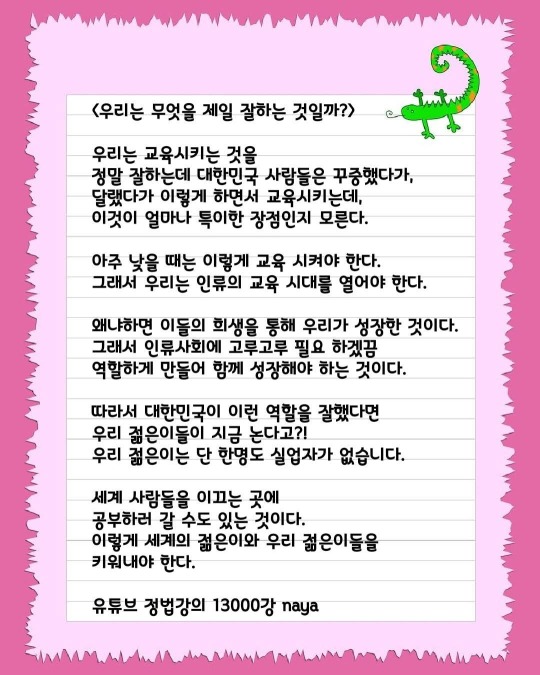 <우리는 무엇을 제일 잘하는 것일까?>
우리는 교육시키는 것을
정말 잘하는데 대한민국 사람들은 꾸중했다가,
달랬다가 이렇게 하면서 교육시키는데,
이것이 얼마나 특이한 장점인지 모른다.
아주 낮을 때는 이렇게 교육 시켜야 한다.
그래서 우리는 인류의 교육 시대를 열어야 한다.
왜냐하면 이들의 희생을 통해 우리가 성장한 것이다.
그래서 인류사회에 고루고루 필요 하겠끔
역할하게 만들어 함께 성장해야 하는 것이다.
따라서 대한민국이 이런 역할을 잘했다면
우리 젊은이들이 지금 논다고?!
우리 젊은이는 단 한명도 실업자가 없습니다.
세계 사람들을 이끄는 곳에
공부하러 갈 수도 있는 것이다.
이렇게 세계의 젊은이와 우리 젊은이들을
키워내야 한다.
유튜브 정법강의 13000강 naya